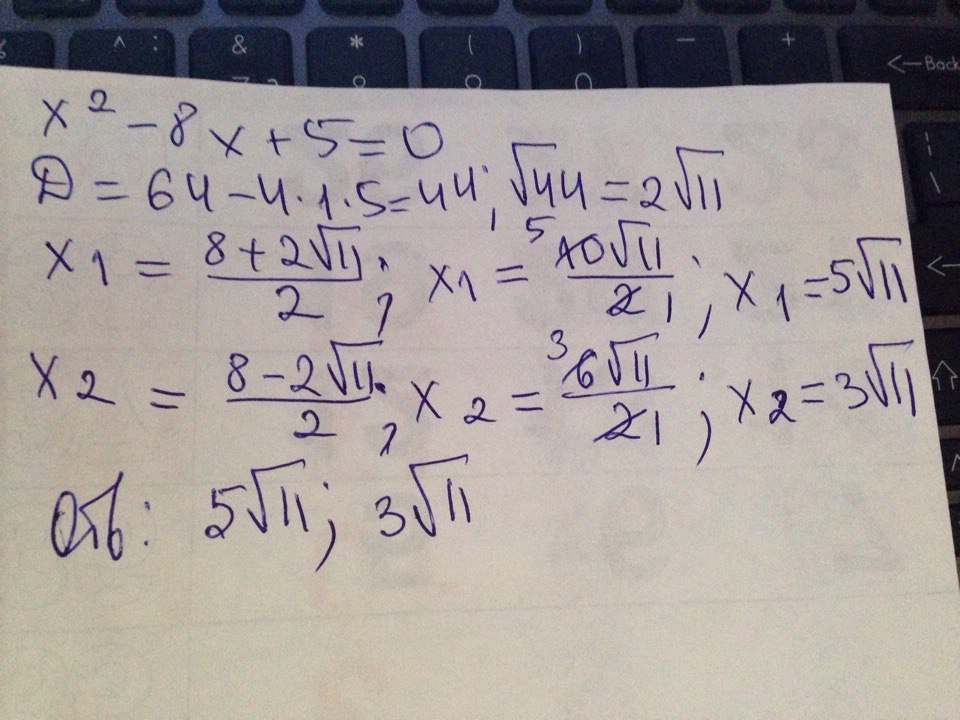 & * ( ) — +
^ : 7 8 9 0 ← Back
x² - 8x + 5 = 0
Д = 64 - 4·1·5 = 44; √44 = 2√11
x1 = (8 + 2√11)/2; x1 = 5 10√11/2 1; x1 = 5√11
x2 = (8 - 2√11)/2; x2 = 3 6√11/2 1; x2 = 3√11
Отв: 5√11; 3√11